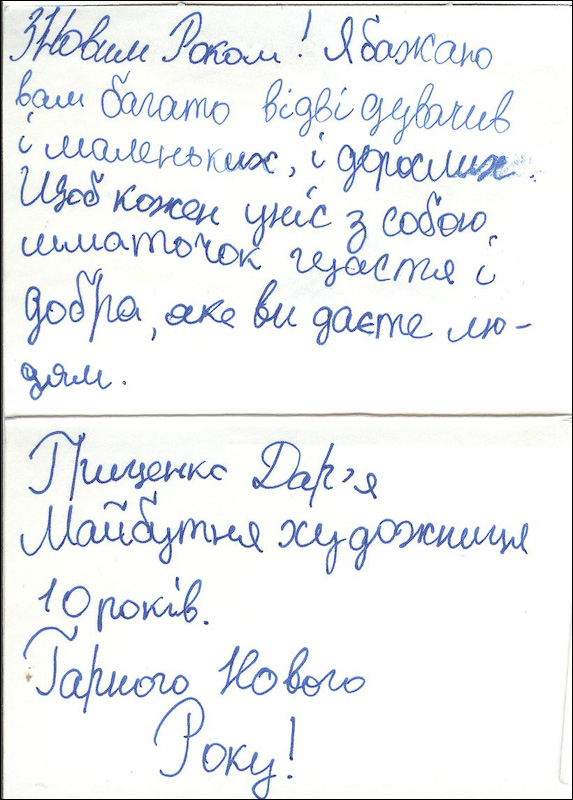 З Новим Роком! Я бажаю
вам багато відвідувачив
і маленьких, і дорослих.
Щоб кожен уніс з собою
шматочок щастя і
добра, яке ви даєте лю-
дям.
Дар'я
Майбутня художниця
10 років.
Гарного Нового
Року!